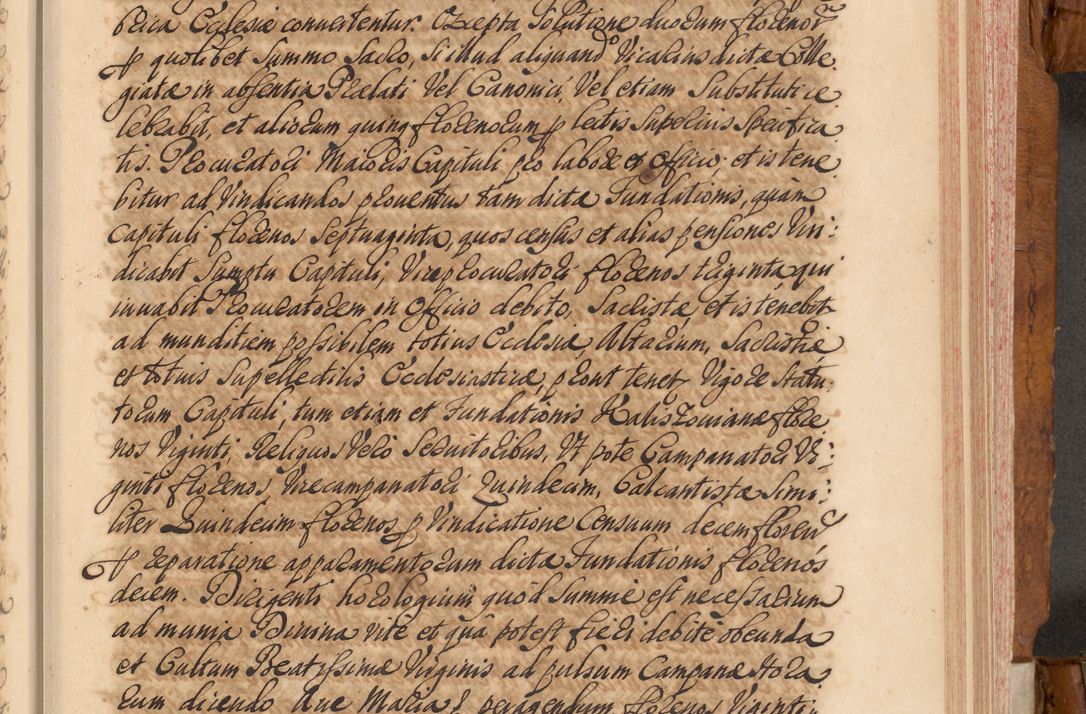 brica Ecclesiæ convertentur. Excepta Solutione duorum florenor
p quolibet Summo Sacro, si illud aliquando Vicarius dictæ Colle
giatæ in absentia Prælati Vel Canonici, Vel etiam Substituti ce
lebrabit, et aliorum quinq florenorum p lectis Superius Specifica
tis. Procuratori Maioris Capituli pro labore et officio, et is tene
bitur ad Vindicandos proventus tam dictæ Fundationis, quàm
Capituli florenos Septuaginta, quos census et alias pensiones Vin:
dicabit Sumptu Capituli, Viceprocuratori florenos triginta qui
iuvabit Procuratorem in officio debito, Sacristæ, et is tenebit
ad munditiem possibilem totius Ecclesiæ, Altarium, Sacristiæ
et totius Supellectilis Ecclesiasticæ, prout tenet Vigore Statu:
torum Capituli, tum etiam et Fundationis Kaliszovianæ flore
nos Viginti, Reliquis Vero Servitoribus, Ut pote Campanatori Vi:
ginti florenos Vicecampanatori Quindecim, Calcantistæ Simi:
liter Quindecim florenos, p Vindicatione Censuum decem floren
p reparatione apparamentorum dictæ Fundationis florenos
decem. Dirigenti horologium quod Summè est necessarium
ad munia Divina rite et quâ potest fieri debitè obeunda
et Cultum Beatissimæ Virginis ad pulsum Campanæ Hora:
rum dicendo Ave Maria peragendum florenos Viginti: